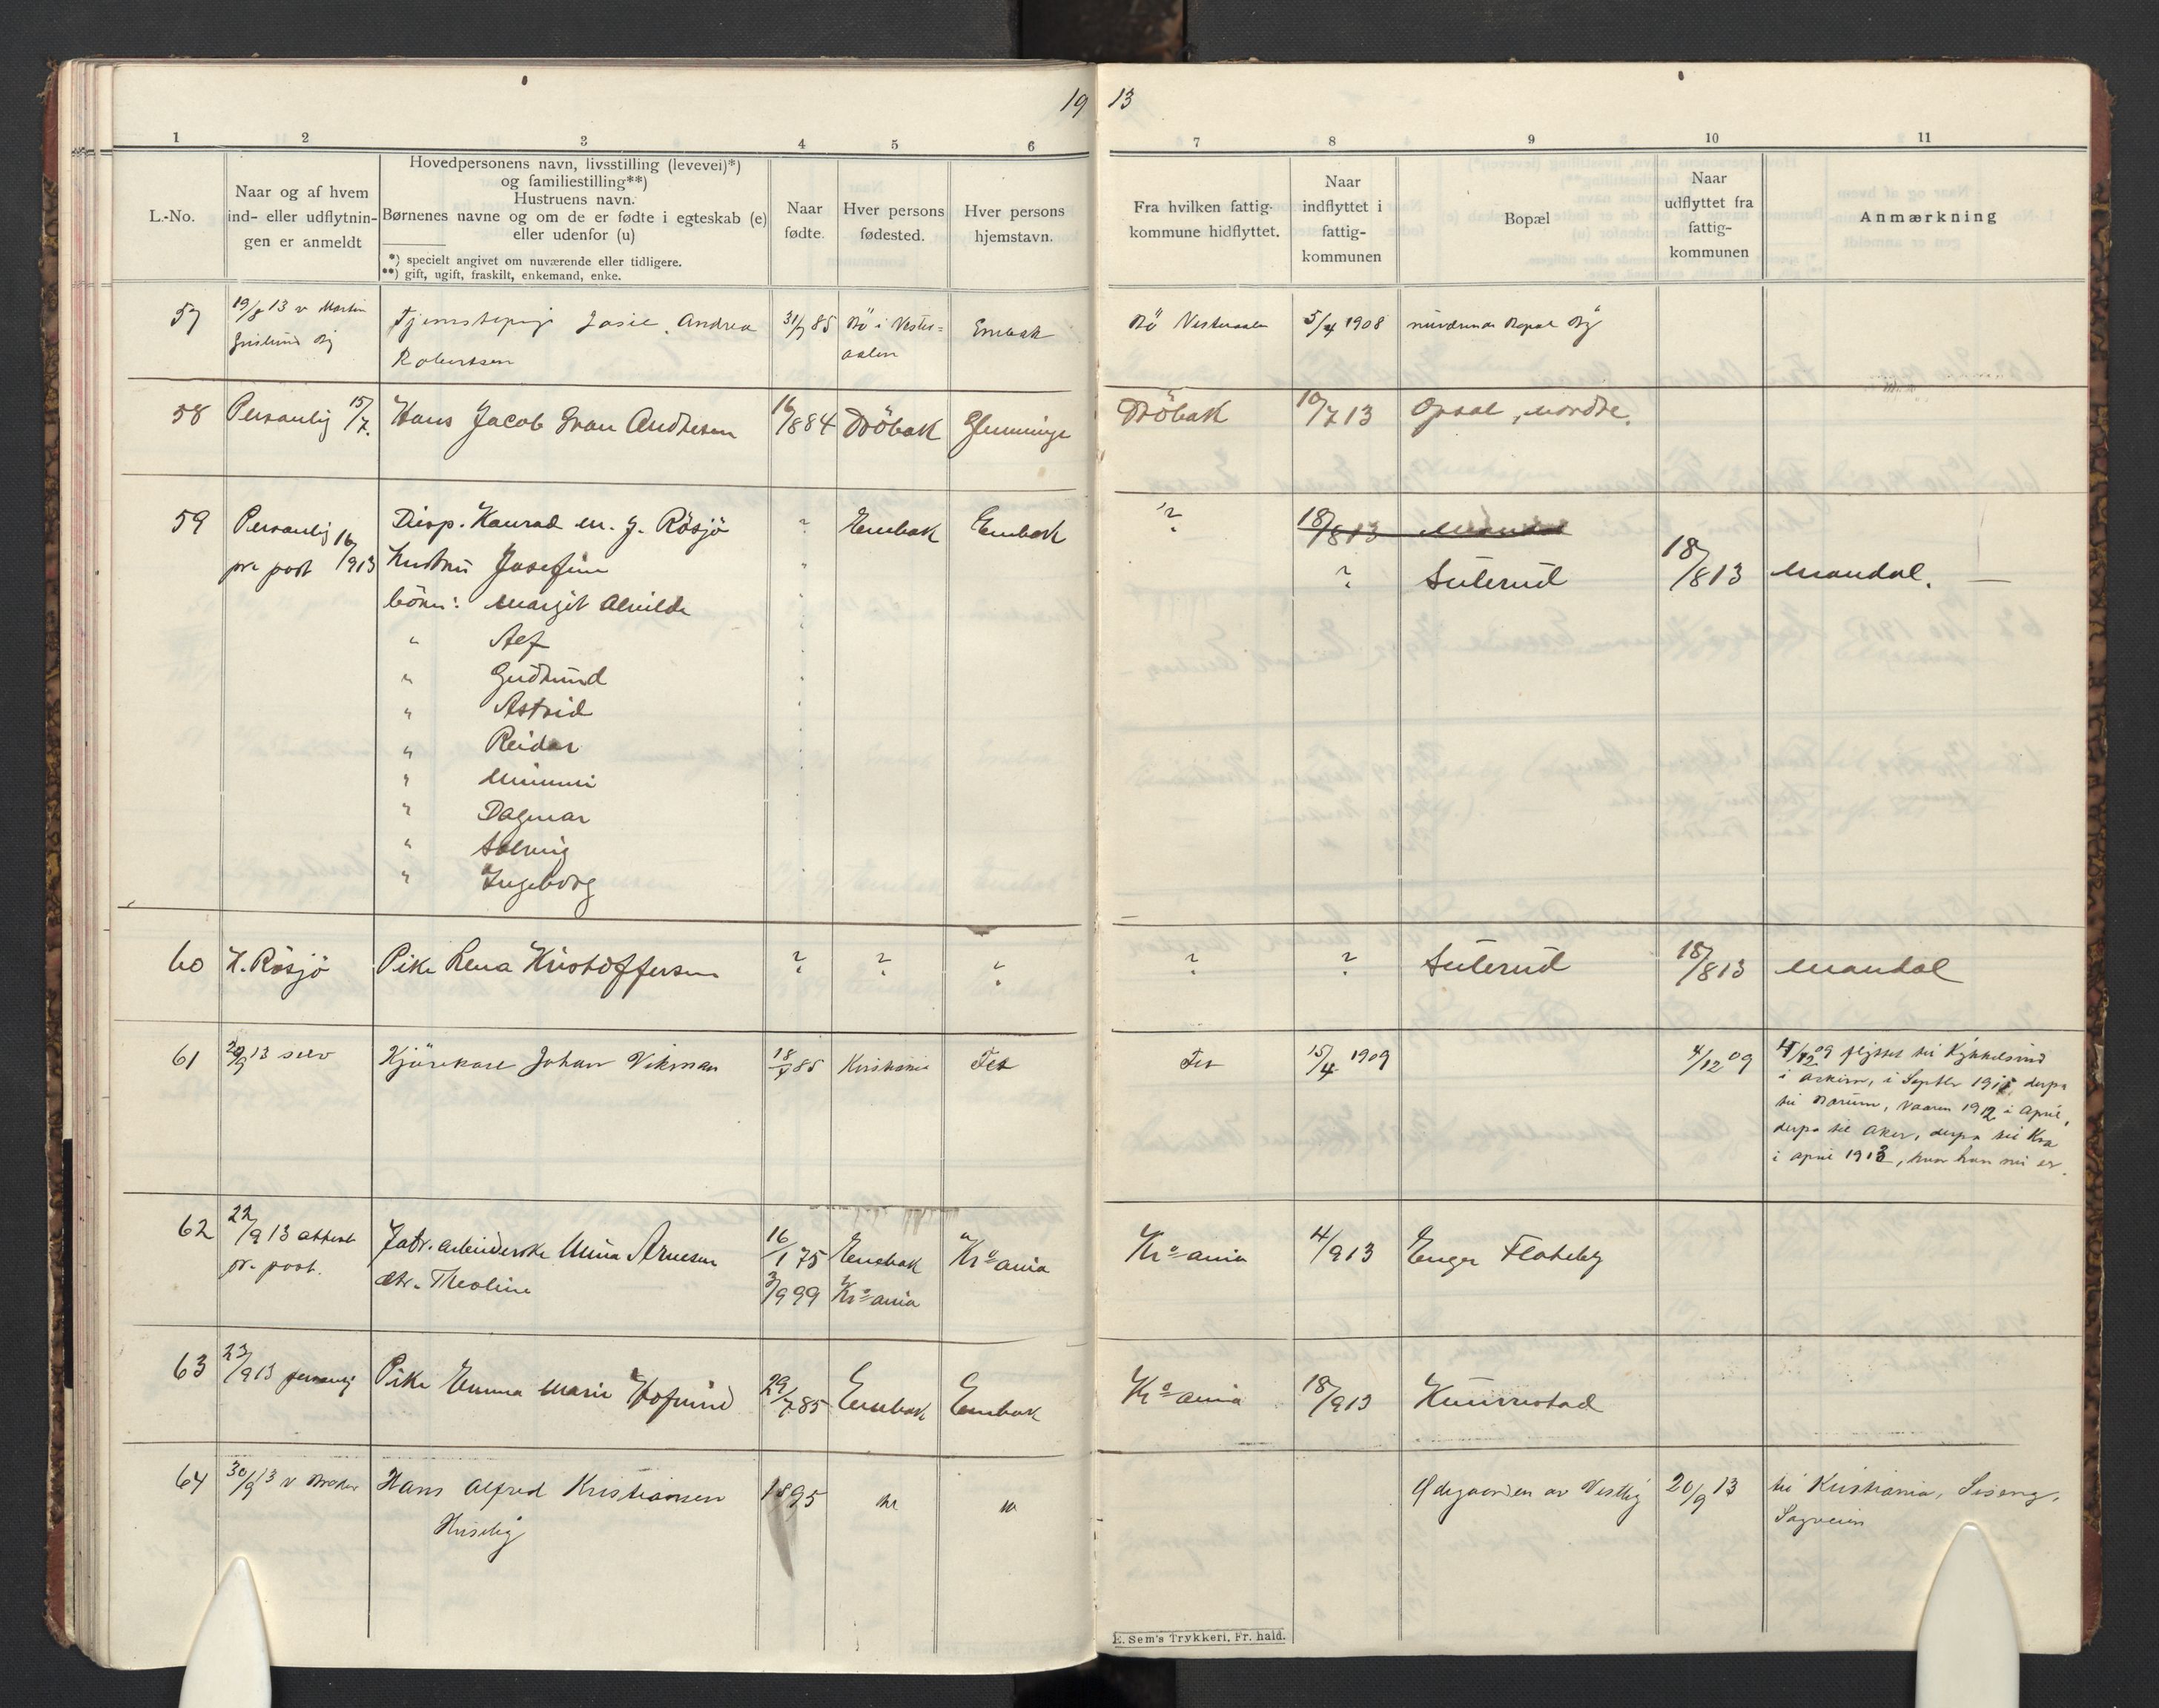 19 13
1 2 3 4 5 6 7 8 9 10 11
L.-No.
Naar og af hvem
ind- eller udflytnin-
gen er anmeldt
Hovedpersonens navn, livsstilling (levevei)*)
og familiestilling**)
Hustruens navn.
Børnenes navne og om de er fødte i egteskab (e)
eller udenfor (u)
*) specielt angivet om nuværende eller tidligere.
**) gift, ugift, fraskilt, enkemand, enke.
Naar
fødte.
Hver persons
fødested.
Hver persons
hjemstavn.
Fra hvilken fattig-
kommune hidflyttet.
Naar
indflyttet i
fattig-
kommunen
Bopæl
Naar
udflyttet fra
fattig-
kommunen
Anmærkning
57 19/6 13 v Martin Tjenestepige Josie Andrea 31/7 85 Bö i Vester= Enebak Bö Vesteraalen 5/4 1908 nuværende Bopæl By
By Robertsen aalen
58 Personlig 15/7. Hans Jacob Andresen 16/884 Dröbak Glemminge Dröbak 10/7 13 Opsal, nordre.
59 Personlig Disp. Konrad m. J. Rösjö " Enebak Enebak ? 18/8 13 Mandal
pr. post 16/913 Hustru Josefine " ? Sulerud 18/8 13 Mandal. —
börn: Margit Alvilde "
" Alf
" Gudrund
" Astrid
" Reidar
" Mimmi
" Dagmar
" Solveig
" Ingeborg
60 K. Rösjö Pike Lena Kristoffersen ? ? ? ? ? Sulerud 18/8 13 Mandal
61 29/9 13 selv Kjörekarl Johan Vikman 18/4 85 Kristiania Fet Fet 15/4 1909 4/12 09 4/12 09 flyttet til Kykkelsrud
i Askim, i Septbr 1911, derpa
til Bærum, vaaren 1912 i April,
derpa til Aker, derpa til Kra
i April 1913, hvor han nu er.
62 22/9 13 attest Fabr. arbeiderske Mina Arnesen 16/1 75 Enebak Kr=ania Kr=ania 4/9 13 Enger Flateby
pr. post. dtr. Theoline 3/9 99 Kr=ania
63 23/9 13 personlig Pike Emma Marie 29/7 85 Enebak Enebak Kr=ania 18/9 13 Kinnestad
64 30/9 13 v Hans Alfred Kristiansen 1895 hr Ødegaarden av Vestby 20/9 13 til Kristiania,
Huseby Sagveien
E. Sem's Trykkeri, Fr. hald.